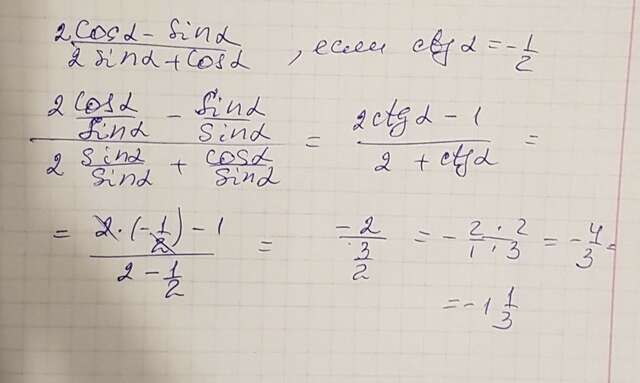 (2cosα - sinα)/(2sinα + cosα), если ctgα = -1/2
(2 cosα/sinα - sinα/sinα)/(2 sinα/sinα + cosα/sinα) = (2ctgα - 1)/(2 + ctgα) =
= (2·(-1/2) - 1)/(2 - 1/2) = -2/(3/2) = -(2·2)/(1·3) = -4/3 =
= -1 1/3